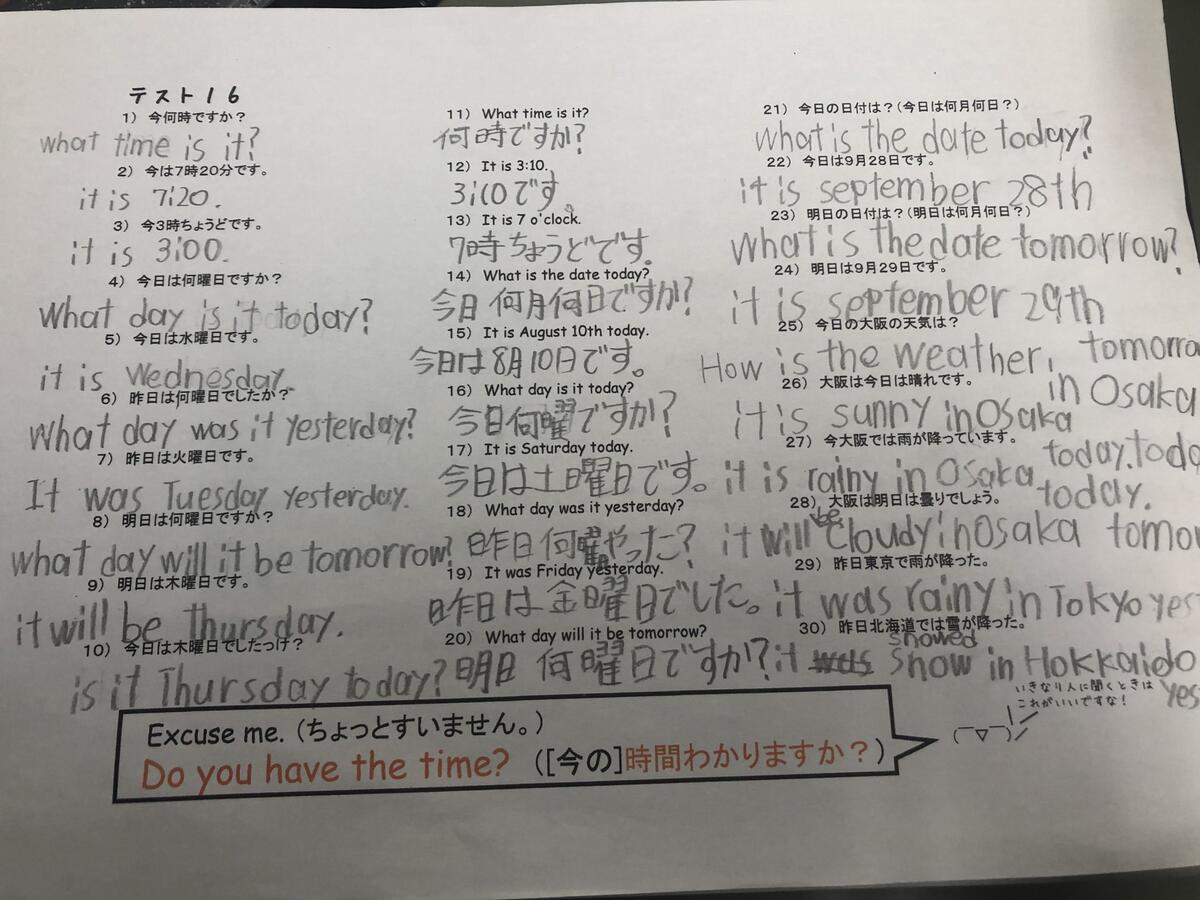 テスト16
1） 今何時ですか？
what time is it?
2） 今は7時20分です。
it is 7:20.
3） 今3時ちょうどです。
it is 3:00.
4） 今日は何曜日ですか？
What day is it today?
5） 今日は水曜日です。
it is Wednesday.
6） 昨日は何曜日でしたか？
What day was it yesterday?
7） 昨日は火曜日です。
It was Tuesday yesterday.
8） 明日は何曜日ですか？
what day will it be tomorrow?
9） 明日は木曜日です。
it will be Thursday.
10） 今日は木曜日でしたっけ？
is it Thursday today?
11） What time is it?
何時ですか?
12） It is 3:10.
3:10です。
13） It is 7 o'clock.
7時ちょうどです。
14） What is the date today?
今日 何月何日ですか?
15） It is August 10th today.
今日は8月10日です。
16） What day is it today?
今日何曜ですか?
17） It is Saturday today.
今日は土曜日です。
18） What day was it yesterday?
昨日何曜やった?
19） It was Friday yesterday.
昨日は金曜日でした。
20） What day will it be tomorrow?
明日 何曜日ですか?
21） 今日の日付は？（今日は何月何日？）
What is the date today?
22） 今日は9月28日です。
it is september 28th
23） 明日の日付は？（明日は何月何日？）
What is the date tomorrow?
24） 明日は9月29日です。
it is september 29th
25） 今日の大阪の天気は？
How is the weather, tomorro
in Osaka
26） 大阪は今日は晴れです。
it is sunny in Osaka
today.
27） 今大阪では雨が降っています。
it is rainy in Osaka
today.
28） 大阪は明日は曇りでしょう。
it will be cloudy in Osaka tomo
29） 昨日東京で雨が降った。
it was rainy in Tokyo yes
30） 昨日北海道では雪が降った。
snowed
it snow in Hokkaido
yes
Excuse me.（ちょっとすいません。）
Do you have the time? （[今の]時間わかりますか？）
いきなり人に聞くときは
これがいいですな！
(￣▽￣)